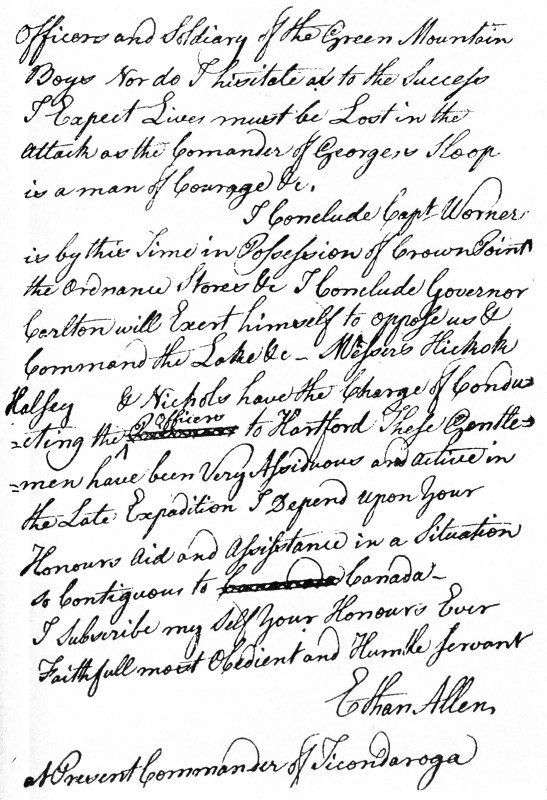 Officers and Soldiary of the Green Mountain
Boys Nor do I hisitate as to the Success
I Expect Lives must be Lost in the
Attack as the Comander of George,s Sloop
is a man of Courage &c.
I Conclude Capt Worner
is by this Time in Possession of Crown Point
the Ordnance Stores &c I Conclude Governor
Carlton will Exert himself to oppose us &
Command the Lake &c – Messers Hickok
Halsey & Nichols have the Charge of Condu=
=cting the Officers to Hartford These Gentle=
=men have been Very Assiduous and active in
the Late Expadition I Depend upon Your
Honours Aid and Assistance in a Situation
so Contiguous to Canada –
I Subscribe my Self Your Honours Ever
Faithfull most Obedient and Humble Servant
Ethan Allen,
At Present Commander of Ticondaroga